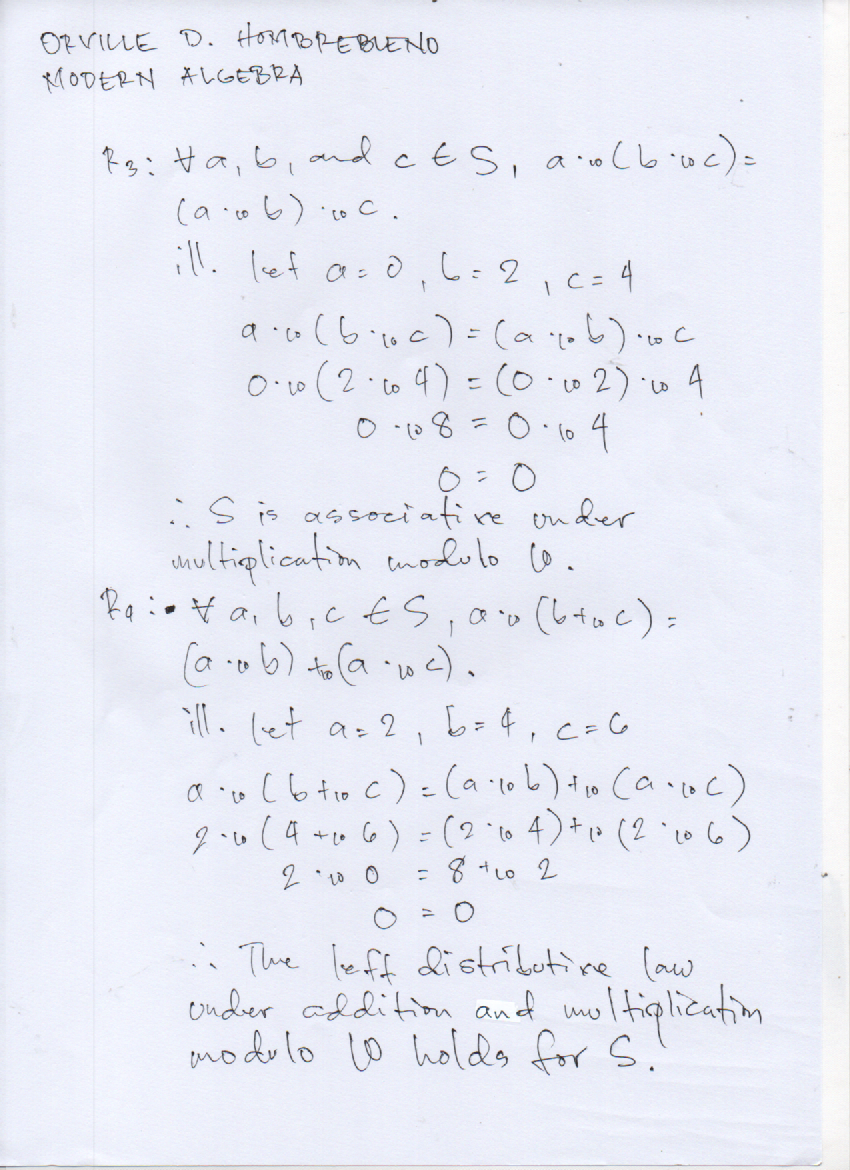 ORVILLE D. HOMBREBUENO
MODERN ALGEBRA
R₃: ∀ a, b, and c ∈ S, a ·₁₀ (b ·₁₀ c) =
(a ·₁₀ b) ·₁₀ c.
ill. let a = 0, b = 2, c = 4
a ·₁₀ (b ·₁₀ c) = (a ·₁₀ b) ·₁₀ c
0 ·₁₀ (2 ·₁₀ 4) = (0 ·₁₀ 2) ·₁₀ 4
0 ·₁₀ 8 = 0 ·₁₀ 4
0 = 0
∴ S is associative under
multiplication modulo 10.
R₄: ∀ a, b, c ∈ S, a ·₁₀ (b +₁₀ c) =
(a ·₁₀ b) +₁₀ (a ·₁₀ c).
ill. let a = 2, b = 4, c = 6
a ·₁₀ (b +₁₀ c) = (a ·₁₀ b) +₁₀ (a ·₁₀ c)
2 ·₁₀ (4 +₁₀ 6) = (2 ·₁₀ 4) +₁₀ (2 ·₁₀ 6)
2 ·₁₀ 0 = 8 +₁₀ 2
0 = 0
∴ The left distributive law
under addition and multiplication
modulo 10 holds for S.